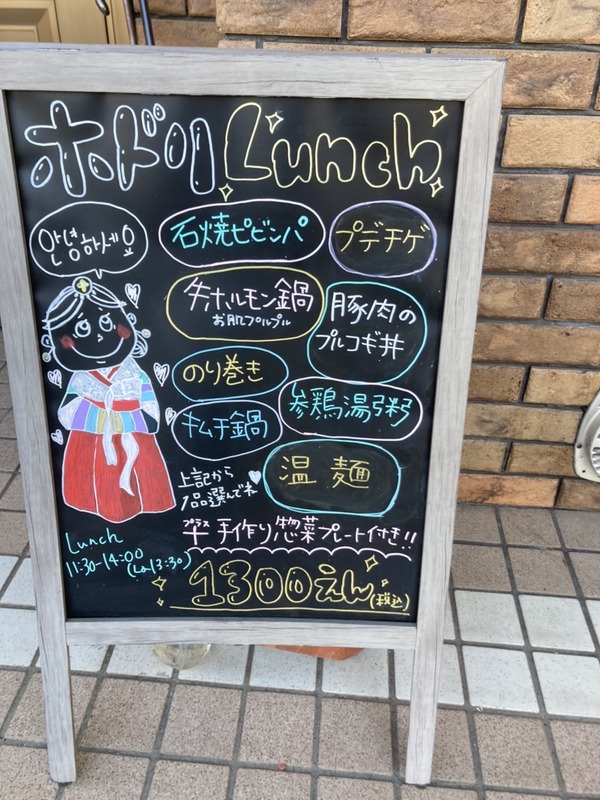 ホドリ Lunch
안녕하세요
石焼ピビンパ
プデチゲ
牛ホルモン鍋
お肌プルプル
豚肉の
プルコギ丼
のり巻き
参鶏湯粥
キムチ鍋
温麺
上記から
1品選んでネ
Lunch
11:30-14:00
(Lo13:30)
プラス
＋ 手作り惣菜プレート付き!!
1300えん(税込)